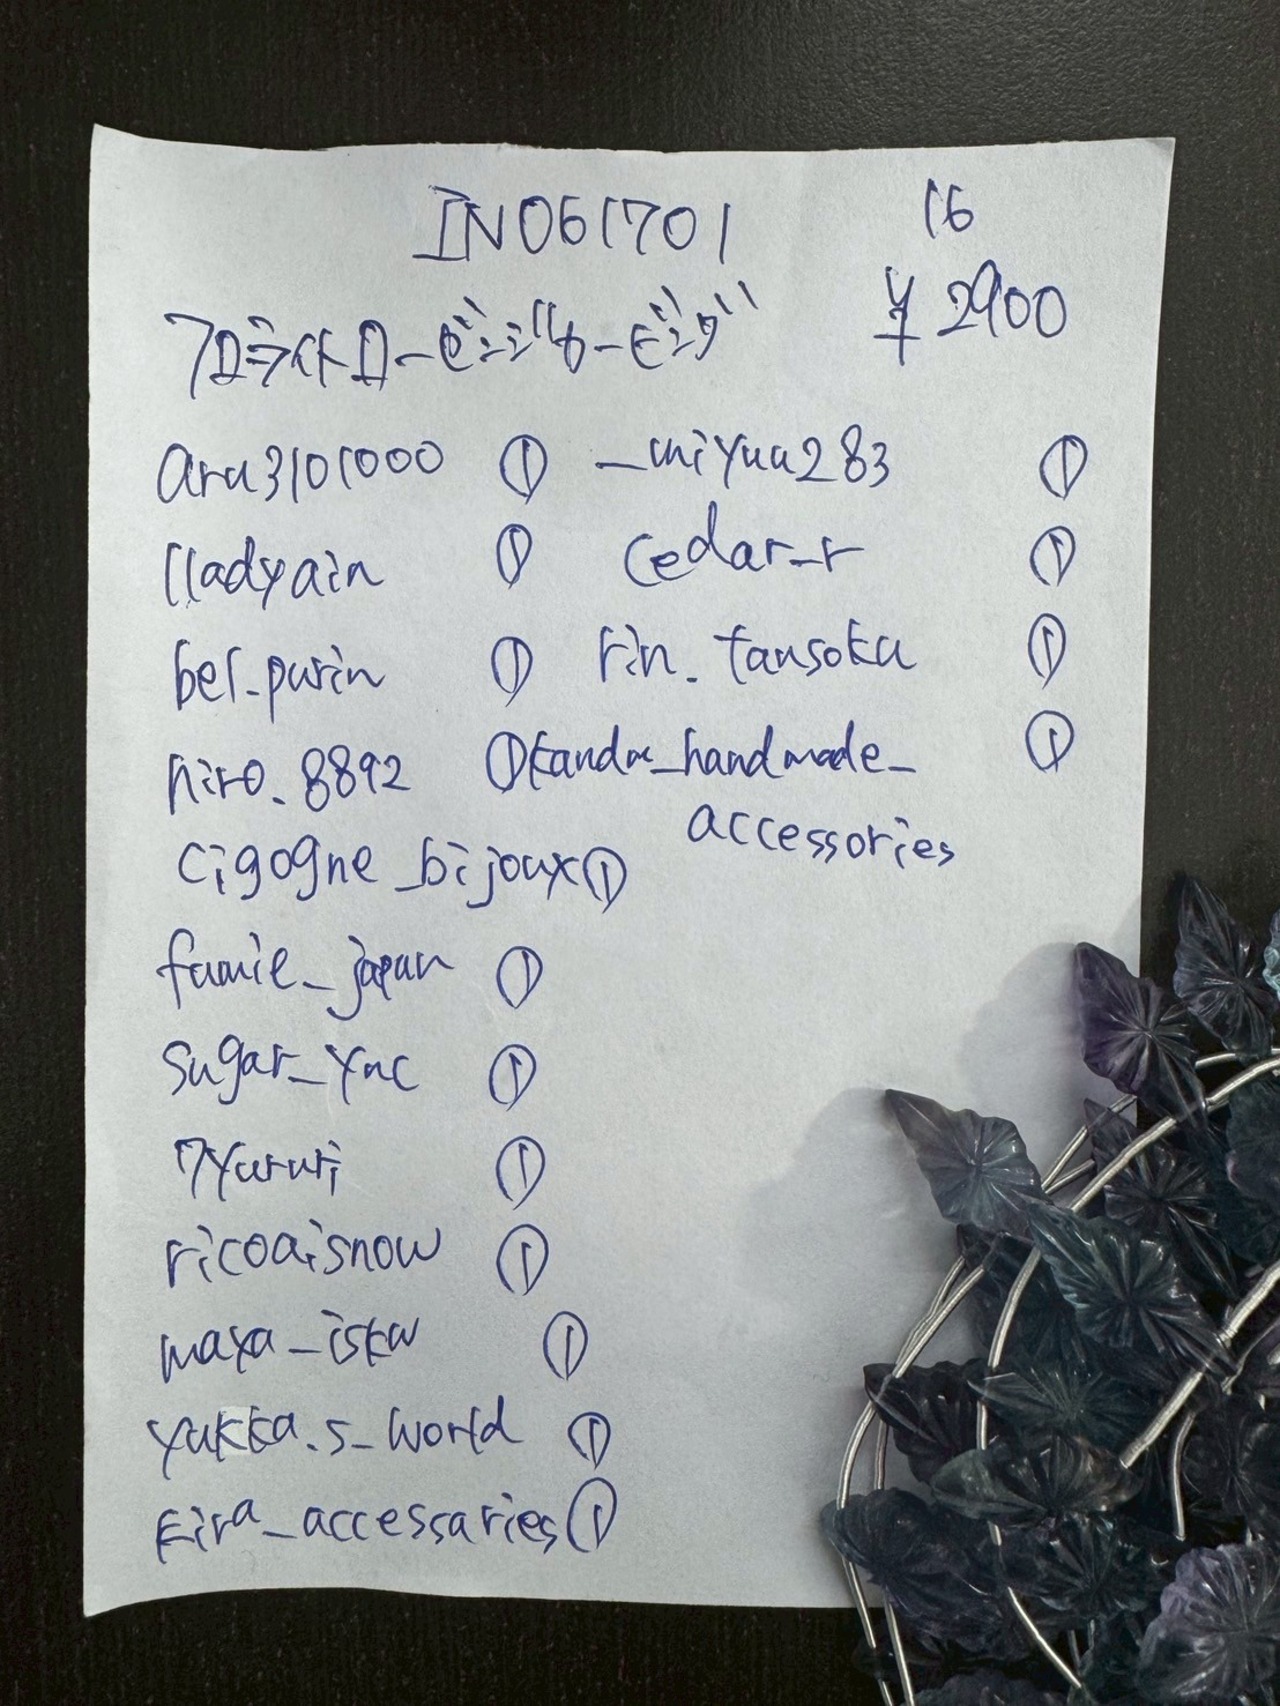 IN061701 16
¥2900
フロライトローゼンジカービング
aru3101000 ① _miyuu283 ①
lladyain ① cedar_r ①
bel_purin ① rin._tansoku ①
hiro_8892 ① kandm_handmade_ ①
accessories
cigogne_bijoux ①
fumie_japan ①
sugar_ync ①
7yururi ①
ricoaisnow ①
maya_iskw ①
yukka.s_world ①
kira_accessaries ①